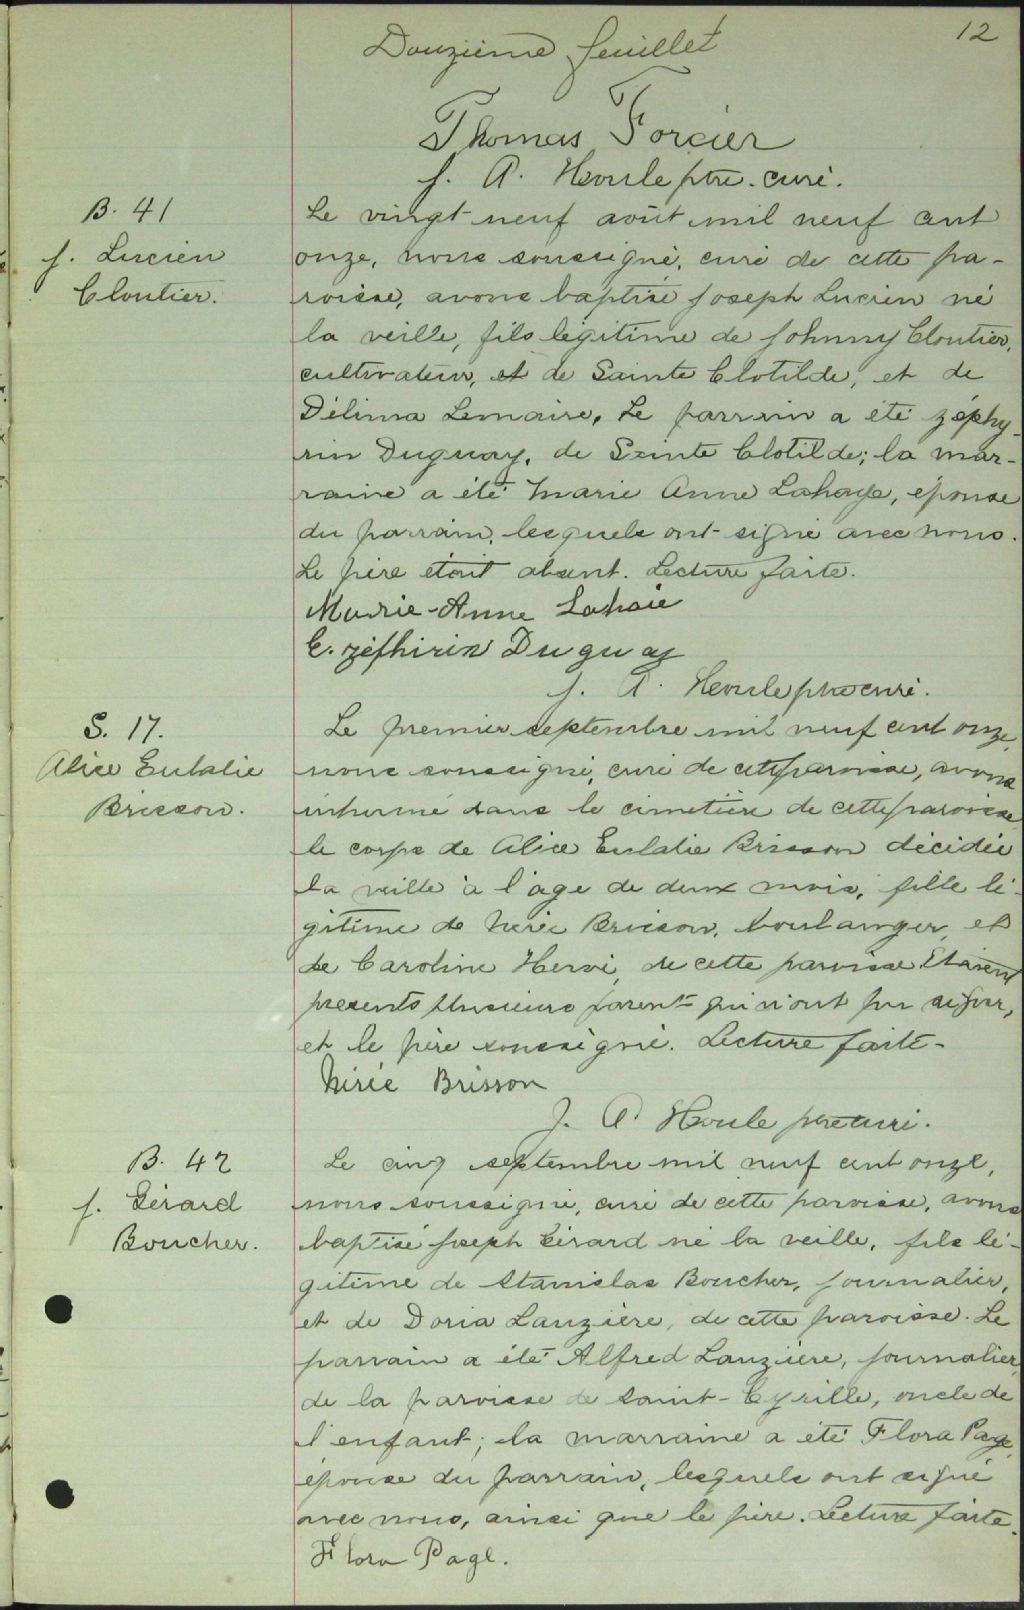 Douzième feuillet
12
Thomas Forcier
J. A. Houle ptre. curé.
B. 41
J. Lucien
Cloutier.
Le vingt neuf août mil neuf cent
onze, nous soussigné, curé de cette pa-
roisse, avons baptisé Joseph Lucien né
la veille, fils légitime de Johnny Cloutier,
cultivateur, et de Sainte Clotilde, et de
Délima Lemaire. Le parrain a été Zéphy-
rin Duguay, de Sainte Clotilde; la mar-
raine a été Marie Anne Lahaye, épouse
du parrain, lesquels ont signé avec nous.
Le père était absent. Lecture faite.
Marie-Anne Lahaie
E. zéfhirin Duguay
J. A. Houle ptre curé.
S. 17.
Alice Eulalie
Brisson.
Le premier septembre mil neuf cent onze,
nous soussigné, curé de cette paroisse, avons
inhumé dans le cimetière de cette paroisse
le corps de Alice Eulalie Brisson décédée
la veille à l'age de deux mois, fille lé-
gitime de Nérée Brisson, boulanger, et
de Caroline Hervé, de cette paroisse. Etaient
presents plusieurs parents qui n'ont pu signer,
et le père soussigné. Lecture faite-
Nirée Brisson
J. A. Houle ptre curé.
B. 42
J. Gérard
Boucher.
Le cinq septembre mil neuf cent onze,
nous soussigné, curé de cette paroisse, avons
baptisé Joseph Gérard né la veille, fils lé-
gitime de Stanislas Boucher, journalier,
et de Doria Lauzière, de cette paroisse. Le
parrain a été Alfred Lauzière, journalier,
de la paroisse de Saint-Cyrille, oncle de
l'enfant; la marraine a été Flora Page,
épouse du parrain, lesquels ont signé
avec nous, ainsi que le père. Lecture faite.
Flora Page.